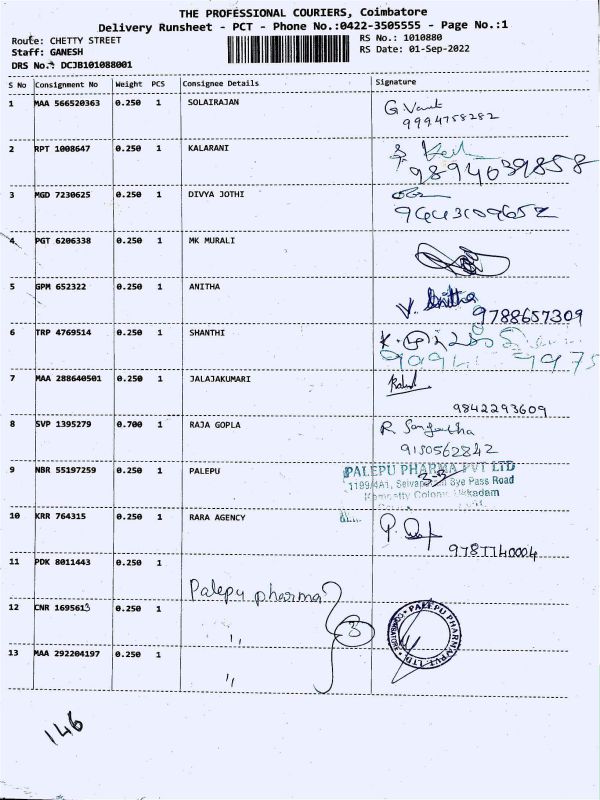 THE PROFESSIONAL COURIERS, Coimbatore
Delivery Runsheet - PCT - Phone No.:0422-3505555 - Page No.:1
Route: CHETTY STREET RS No.: 1010880
Staff: GANESH RS Date: 01-Sep-2022
DRS No.: DCJB101088001
S No Consignment No Weight PCS Consignee Details Signature
1 MAA 566520363 0.250 1 SOLAIRAJAN
9994758282
2 RPT 1008647 0.250 1 KALARANI
9894039858
3 MGD 7230625 0.250 1 DIVYA JOTHI
4 PGT 6206338 0.250 1 MK MURALI
5 GPM 652322 0.250 1 ANITHA V. Anitha
9788657309
6 TRP 4769514 0.250 1 SHANTHI
7 MAA 288640501 0.250 1 JALAJAKUMARI
9842293609
8 SVP 1395279 0.700 1 RAJA GOPLA R Sangeetha
9150562842
9 NBR 55197259 0.250 1 PALEPU PALEPU PHARMA PVT LTD
1199/4A1, Bye Pass Road
Colony Ukkadam
10 KRR 764315 0.250 1 RARA AGENCY
9787740004
11 PDK 8011443 0.250 1
Palepu pharma
12 CNR 1695613 0.250 1 ,, 3 PALEPU PHARMA PVT LTD COIMBATORE
13 MAA 292204197 0.250 1
,,
146